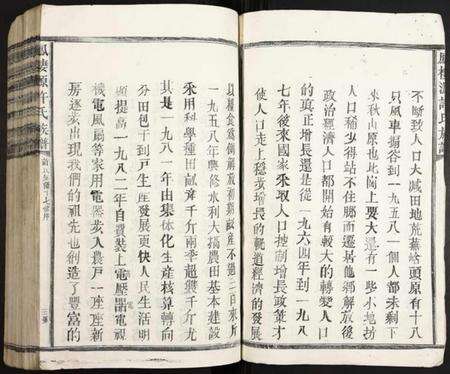 鳳棲源許氏族譜
不斷致人口大减田地荒蕪岵頭原有十八
只風車搧谷到一九五八一個人都未剩下
來秋山原也比崗上要大還有一些小地坊
人口稀少得站不住腳而遷居他鄉解放後
政治經濟人口都開始有較大的轉變人口
的真正增長還是從一九六四年到一九八
七年後來國家采取人口控制增長政策才
使人口走上穩步增長的軌道經濟的發展
以糧食爲例解放初期畝產不過二百來斤
一九五八年興修水利大搞農田基本建設
采用科學種田畝產千斤兩季超雙千斤尤
其是一九八一年由集体化生產核算轉向
分田包干到戸生產發展更快人民生活明
顯提高一九八二年自費裝上電壓器電視
機電風扇等家用電器步入農戸一座座新
房逐步出現我們的祖先也創造了豐富的
鳳棲源許氏族譜
三